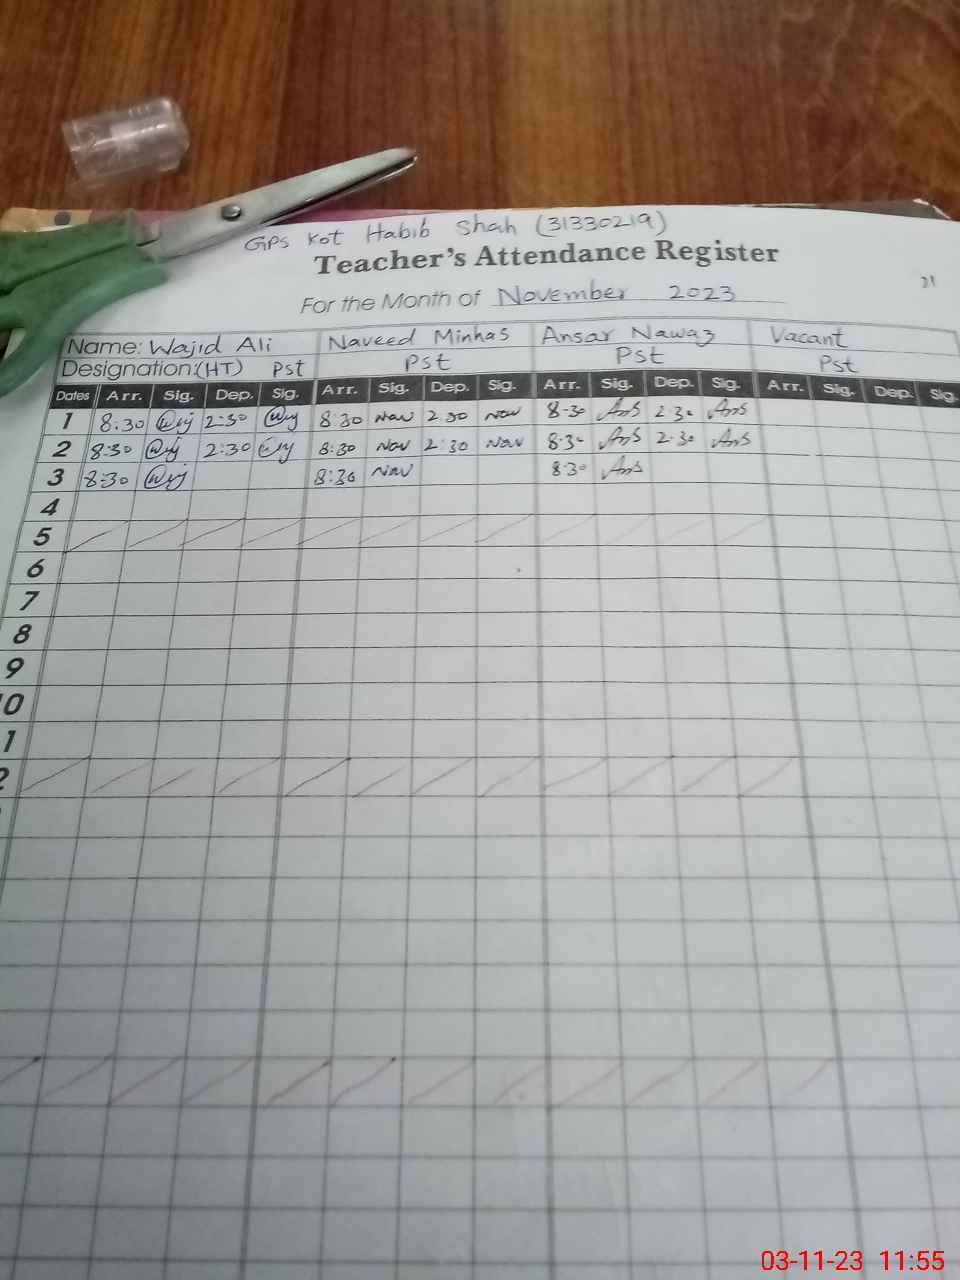 GPS Kot Habib Shah (31330219)
Teacher's Attendance Register
For the Month of November 2023
Name: Wajid Ali Naveed Minhas Ansar Nawaz Vacant
Designation:(HT) Pst Pst Pst Pst
Dates Arr. Sig. Dep. Sig. Arr. Sig. Dep. Sig. Arr. Sig. Dep. Sig. Arr. Sig. Dep. Sig.
1 8:30 2:30 8:30 Nav 2:30 Nav 8:30 Ans 2:30 Ans
2 8:30 2:30 8:30 Nav 2:30 Nav 8:30 Ans 2:30 Ans
3 8:30 8:30 Nav 8:30 Ans
4
5
6
7
8
9
10
1
2
03-11-23 11:55